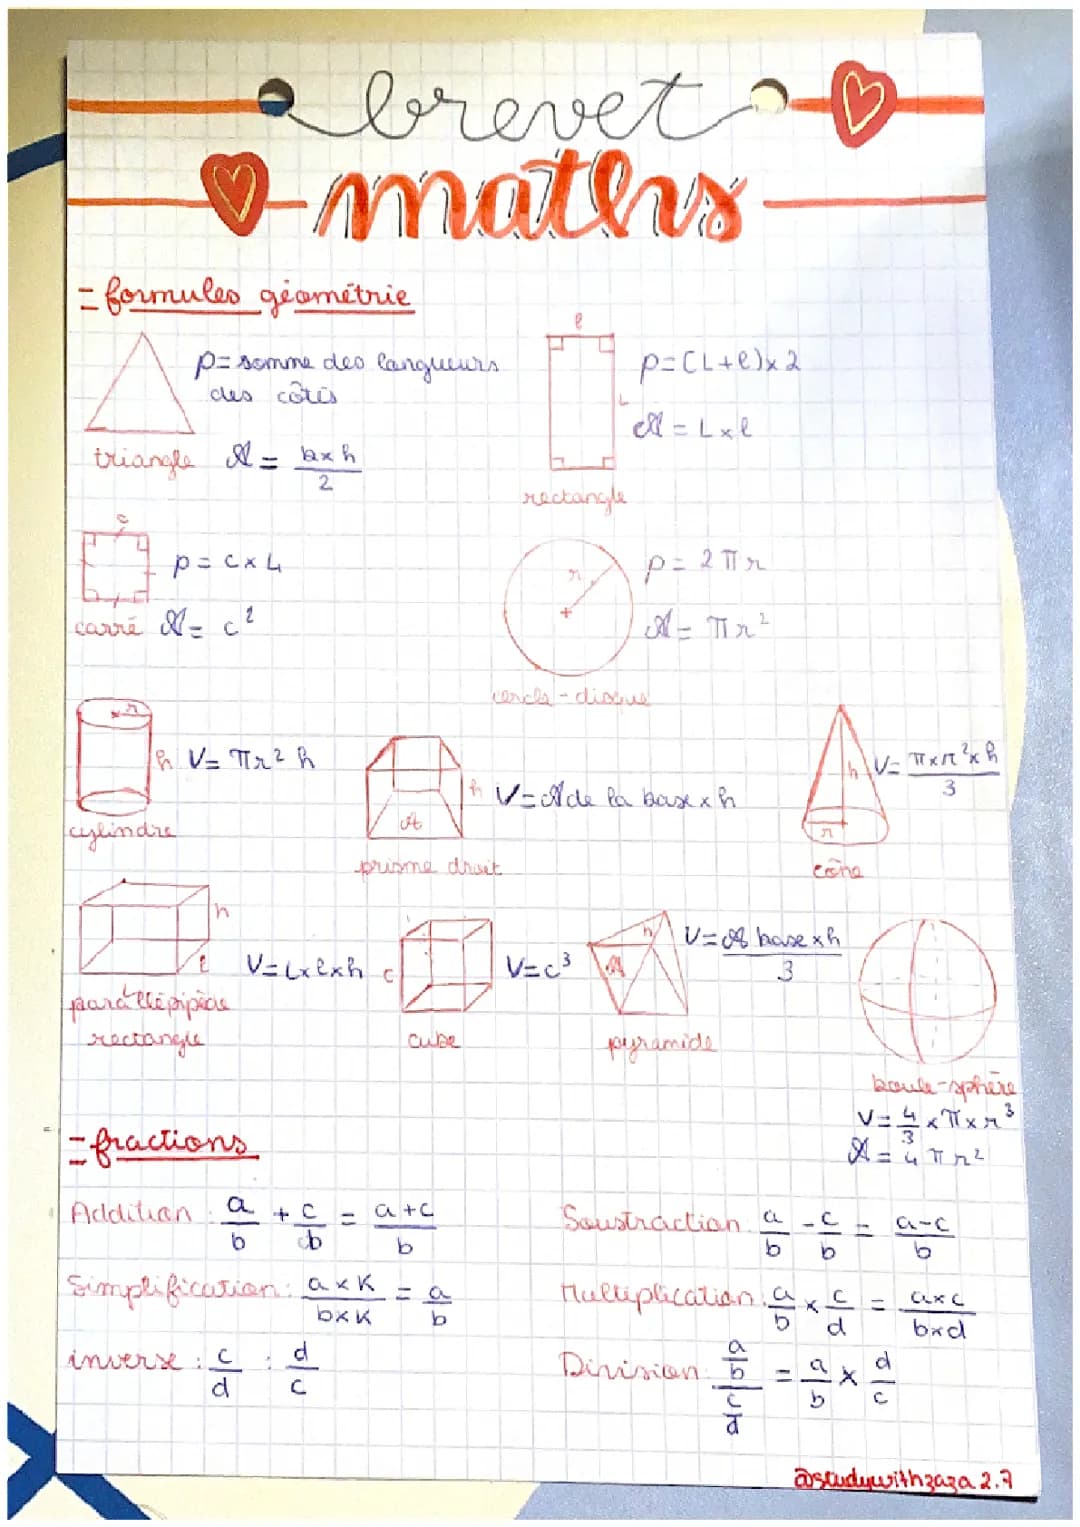 brevet
maths
= formules géométrie
p= somme des longueurs
des côtés
triangle A = b×h/2
l
p=(L+l)×2
L
A = L×l
rectangle
c
p= c×4
carré A= c²
r
p= 2πr
A= πr²
cercle-disque
r
h V= πr² h
cylindre
h V=A de la base×h
A
prisme droit
h V= π×r²×h/3
r
cône
h
l V=L×l×h
parallépipède
rectangle
c V=c³
cube
h V=A base×h/3
A
pyramide
boule-sphère
V= 4/3 ×π×r³
A= 4πr²
= fractions
Addition : a/b + c/b = a+c/b
Soustraction : a/b - c/b = a-c/b
Simplification : a×K/b×K = a/b
Multiplication : a/b × c/d = a×c/b×d
inverse : c/d : d/c
Division : a/b/c/d = a/b × d/c
@studywithzaza2.7